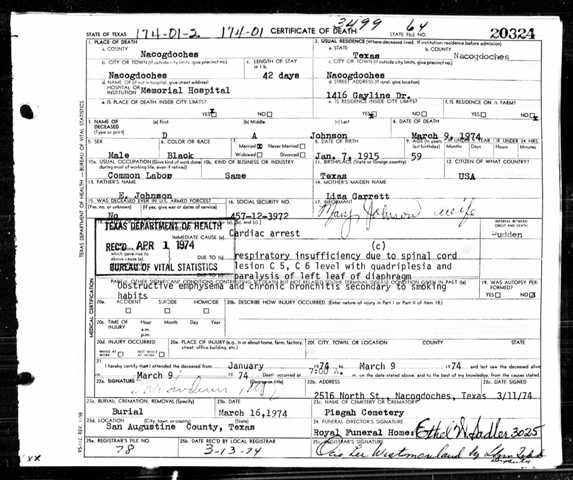 3499 64
STATE OF TEXAS 174-01-2 174-01 CERTIFICATE OF DEATH STATE FILE NO. 20324
1. PLACE OF DEATH 2. USUAL RESIDENCE (Where deceased lived. If institution: residence before admission)
a. COUNTY Nacogdoches a. STATE Texas b. COUNTY Nacogdoches
b. CITY OR TOWN (If outside city limits, give precinct no.) Nacogdoches c. LENGTH OF STAY in 1 b. 42 days c. CITY OR TOWN (If outside city limits, give precinct no.) Nacogdoches
d. NAME OF (If not in hospital, give street address) HOSPITAL OR INSTITUTION Memorial Hospital d. STREET ADDRESS (If rural, give location) 1416 Gayline Dr.
e. IS PLACE OF DEATH INSIDE CITY LIMITS? YES NO e. IS RESIDENCE INSIDE CITY LIMITS? YES NO f. IS RESIDENCE ON A FARM? YES NO
3. NAME OF DECEASED (a) First D (b) Middle A (c) Last Johnson 4. DATE OF DEATH March 9, 1974
5. SEX Male 6. COLOR OR RACE Black 7. Married Never Married Widowed Divorced 8. DATE OF BIRTH Jan. 7, 1915 9. AGE (In years last birthday) 59
10a. USUAL OCCUPATION (Give kind of work done during most of working life, even if retired) Common Labor 10b. KIND OF BUSINESS OR INDUSTRY Same 11. BIRTHPLACE (State or foreign country) Texas 12. CITIZEN OF WHAT COUNTRY? USA
13. FATHER'S NAME E. Johnson 14. MOTHER'S MAIDEN NAME Liza Garrett
15. WAS DECEASED EVER IN U.S. ARMED FORCES? No 16. SOCIAL SECURITY NO. 457-12-3972 17. INFORMANT Johnson wife
TEXAS DEPARTMENT OF HEALTH
REC'D APR 1 1974
BUREAU OF VITAL STATISTICS
IMMEDIATE CAUSE (a) Cardiac arrest INTERVAL BETWEEN ONSET AND DEATH
(c)
DUE TO respiratory insufficiency due to spinal cord
DUE TO lesion C 5, C 6 level with quadriplesia and
paralysis of left leaf of diaphragm
Obstructive emphysema and chronic bronchitis secondary to smoking
habits 19. WAS AUTOPSY PERFORMED? YES NO
20a. ACCIDENT SUICIDE HOMICIDE 20b. DESCRIBE HOW INJURY OCCURRED. (Enter nature of injury in Part I or Part II of item 18)
20c. TIME OF INJURY Hour Month Day Year a.m. p.m.
20d. INJURY OCCURRED WHILE AT WORK NOT WHILE AT WORK 20e. PLACE OF INJURY (e.g., in or about home, farm, factory, street, office building, etc.) 20f. CITY, TOWN, OR LOCATION COUNTY STATE
21. I hereby certify that I attended the deceased from January 74 to March 9 74 and last saw the deceased alive
March 9 74 Death occurred at 7:00 m. on the date stated above, and to the best of my knowledge, from the causes stated.
22a. SIGNATURE 22b. ADDRESS 22c. DATE SIGNED
2516 North St. Nacogdoches, Texas 3/11/74
23a. BURIAL, CREMATION, REMOVAL (Specify) Burial 23b. DATE March 16,1974 23c. NAME OF CEMETERY OR CREMATORY Pisgah Cemetery
23d. LOCATION San Augustine County, Texas 24. FUNERAL DIRECTOR'S SIGNATURE Royal Funeral Home: Ethel W. Sadler 3025
25a. REGISTRAR'S FILE NO. 78 25b. DATE REC'D BY LOCAL REGISTRAR 3-13-74 25c. REGISTRAR'S SIGNATURE
TEXAS DEPARTMENT OF HEALTH—BUREAU OF VITAL STATISTICS
MEDICAL CERTIFICATION